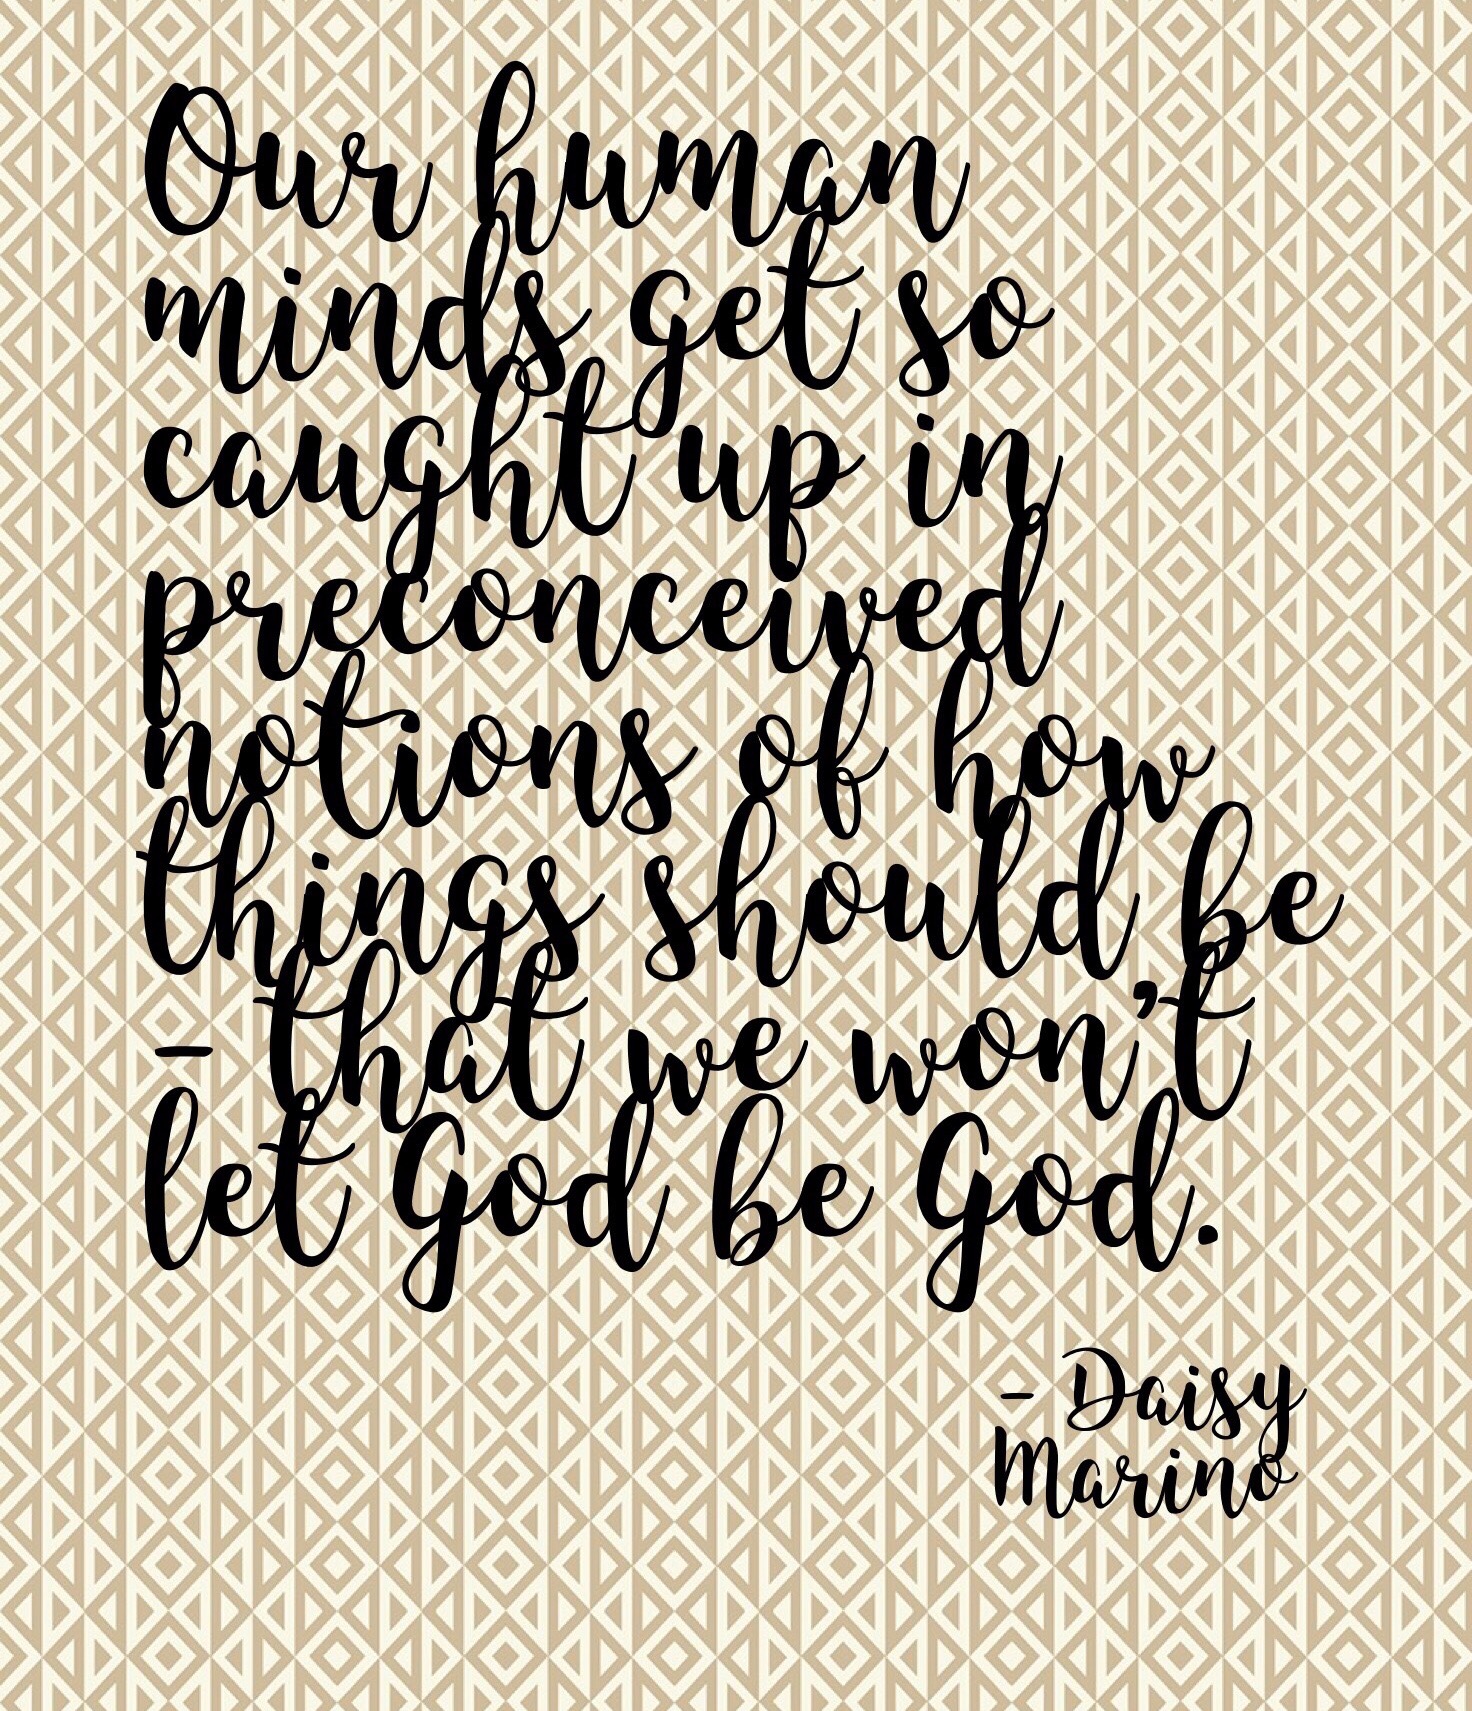 Our human
minds get so
caught up in
preconceived
notions of how
things should be
- that we won't
let God be God.
- Daisy
Marino